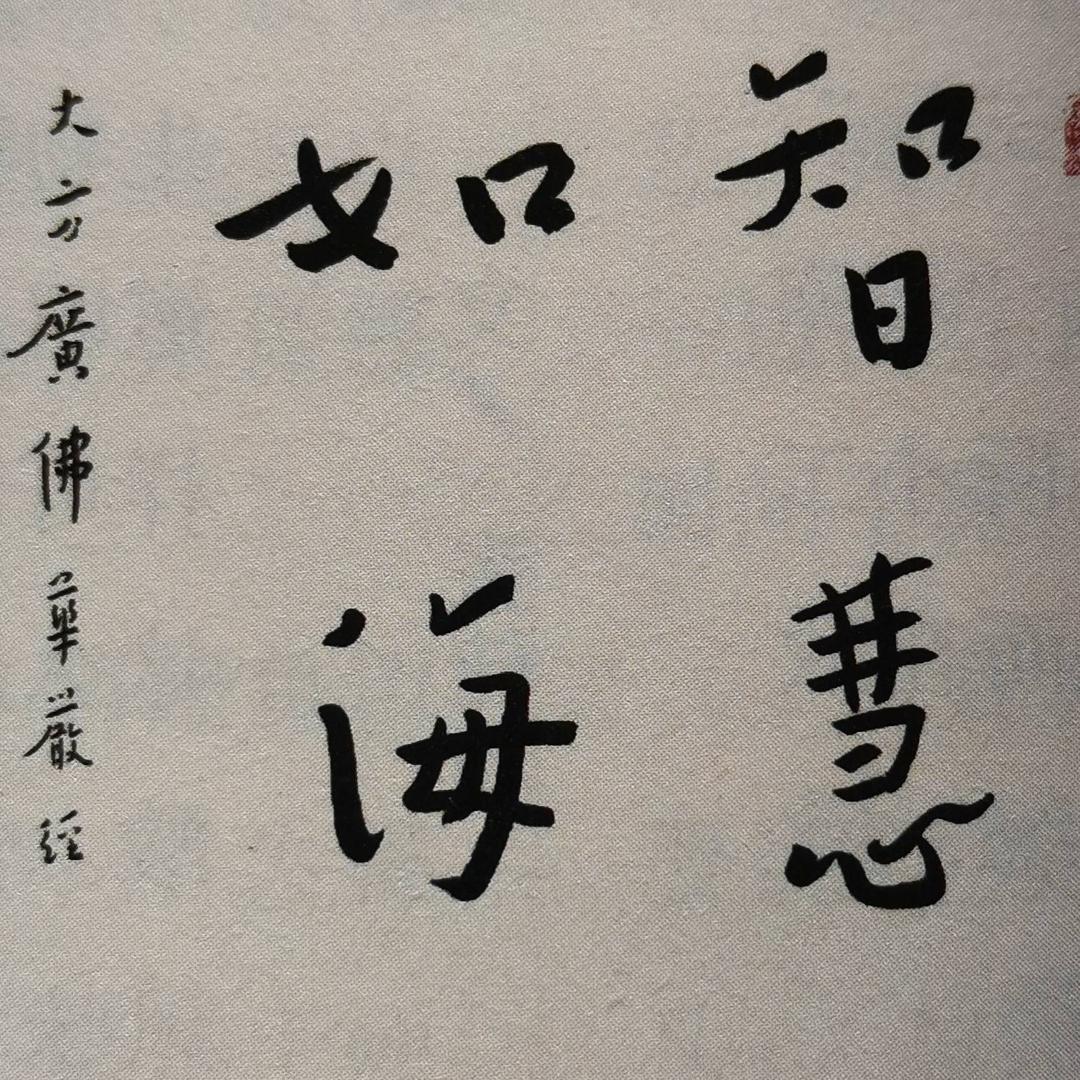 智慧
如海
大方廣佛華嚴經